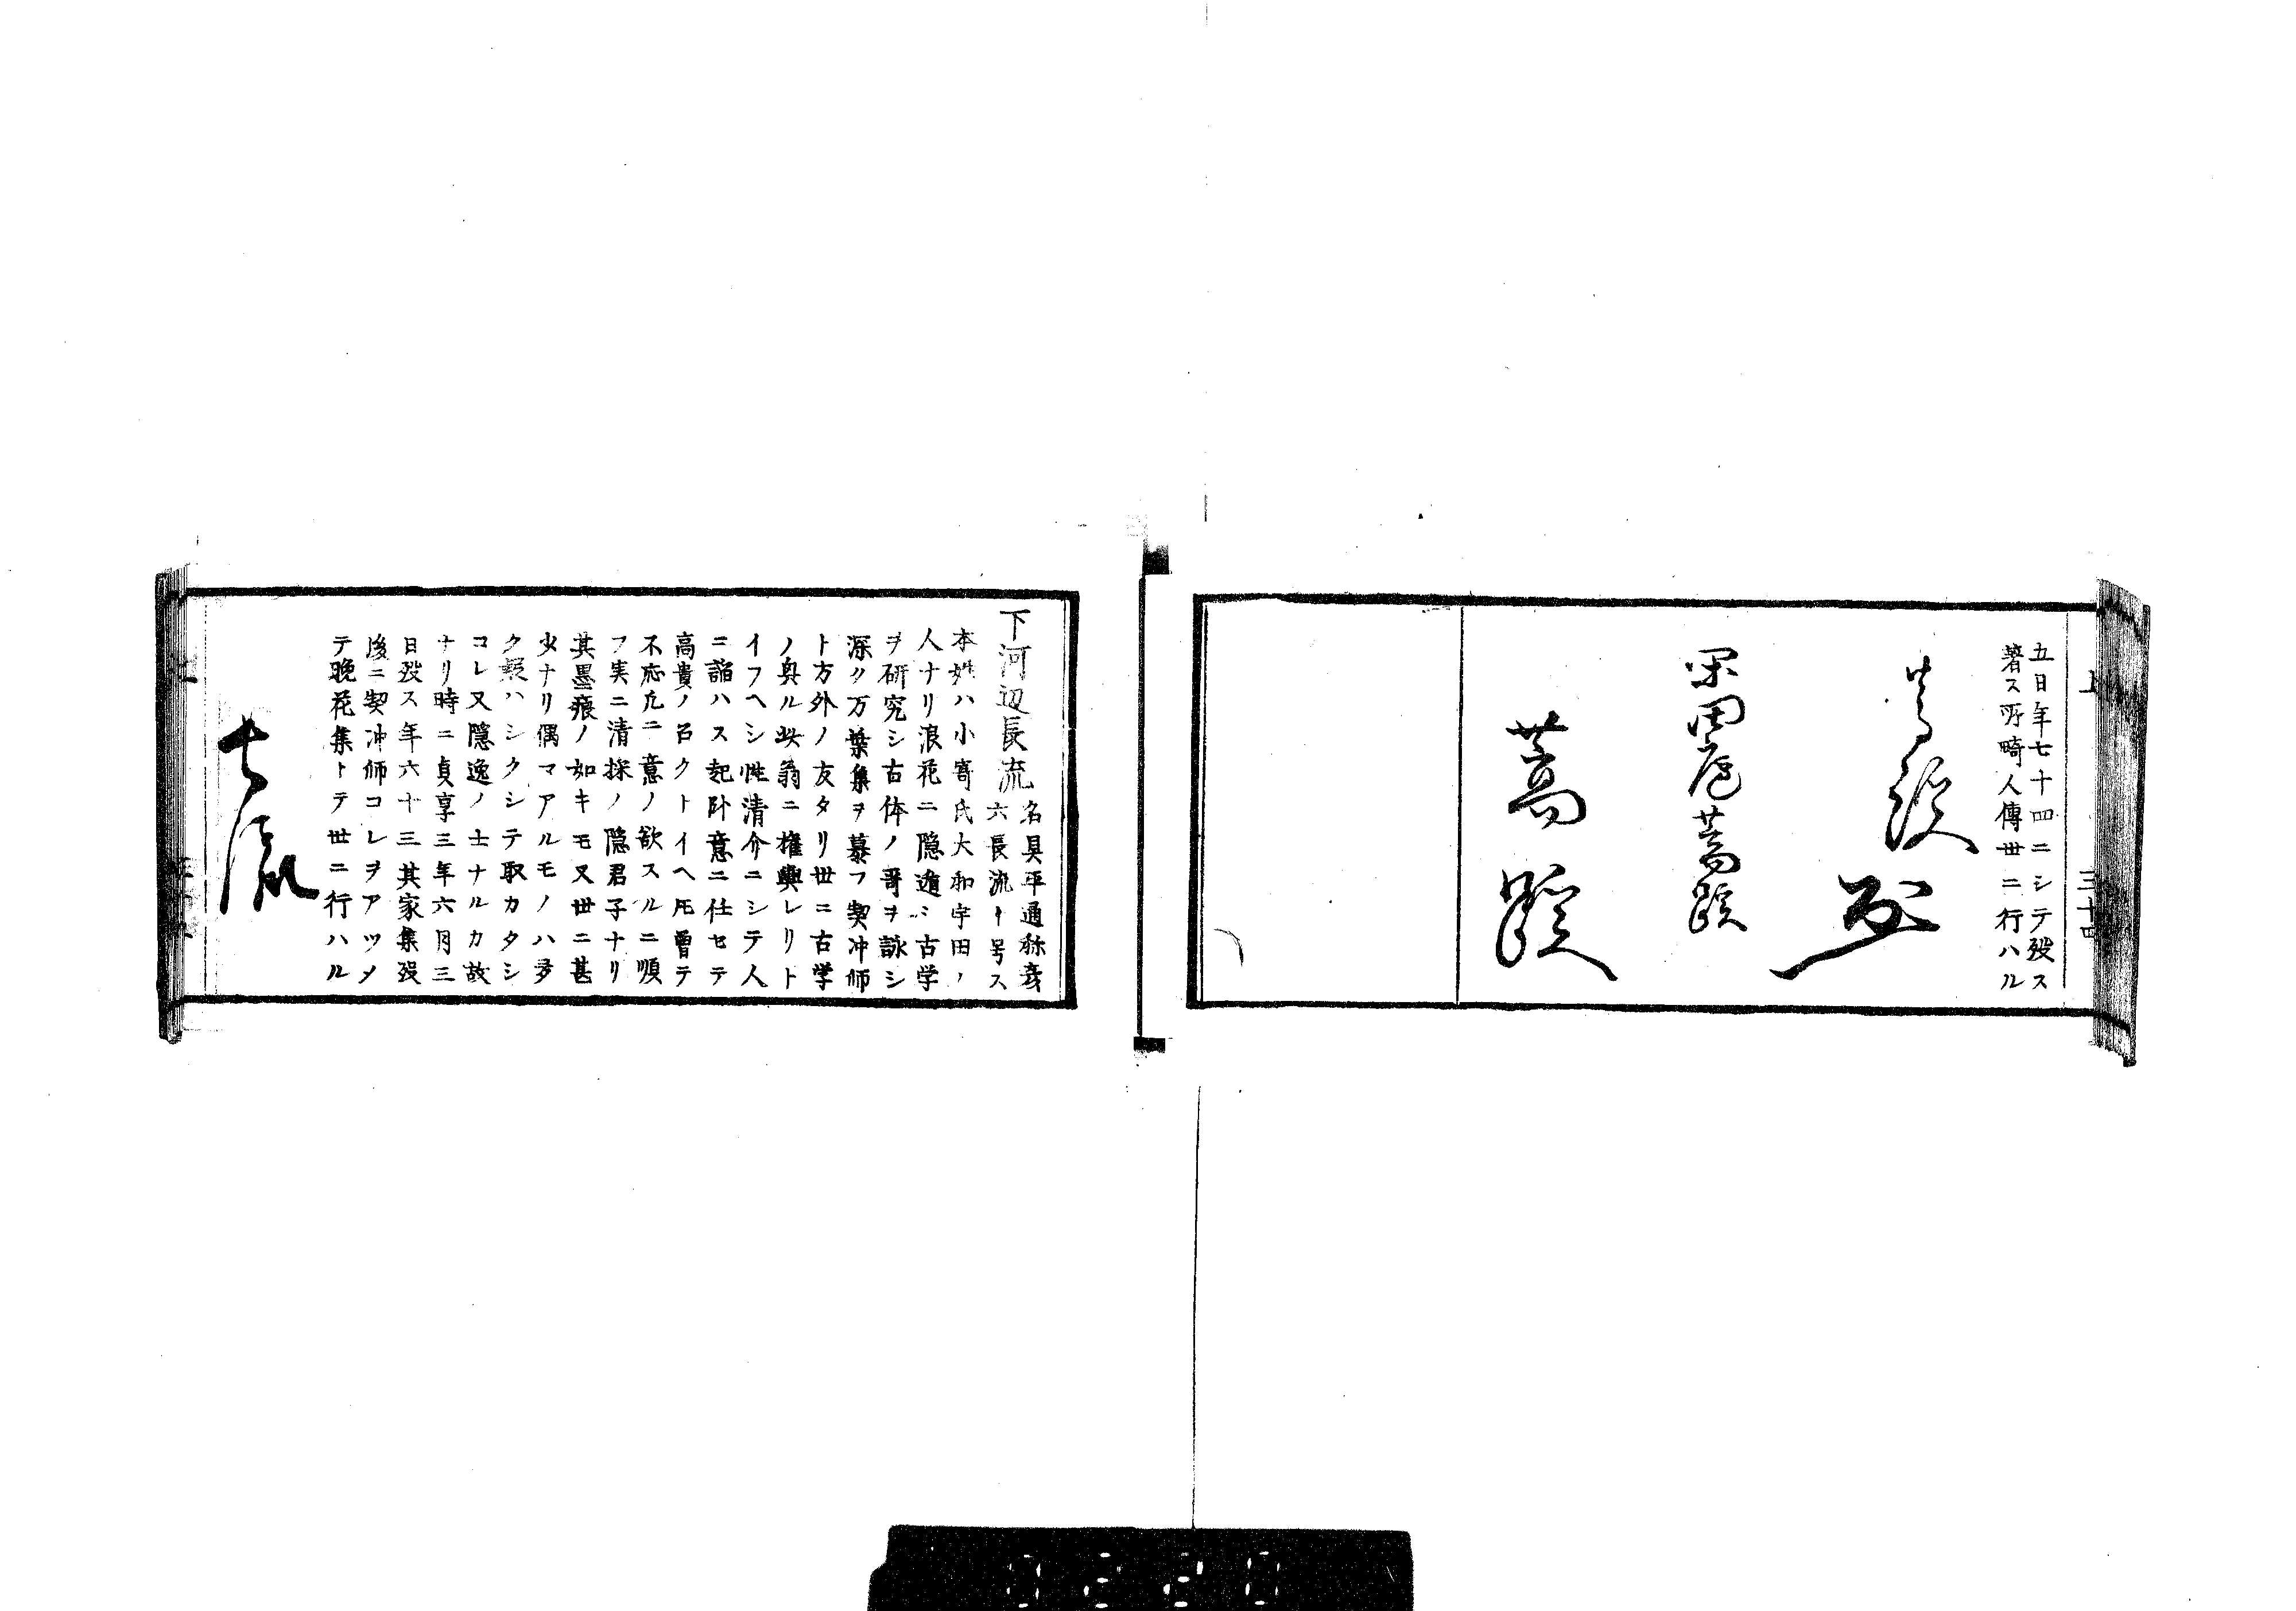 上 三十四
五日年七十四ニシテ歿ス
著ス所畸人傳世ニ行ハル
蒿蹊
閑田廬蒿蹊
蒿蹊
下河辺長流
名具平通称彦
六長流ト号ス
本姓ハ小寄氏大和宇田ノ
人ナリ浪花ニ隠遁シ古学
ヲ研究シ古体ノ哥ヲ詠シ
深ク万葉集ヲ慕フ契冲師
ト方外ノ友タリ世ニ古学
ノ奥ル此翁ニ権輿レリト
イフヘシ性清介ニシテ人
ニ諂ハス起卧意ニ任セテ
高貴ノ召クトイヘ𪜈曽テ
不応凢ニ意ノ欲スルニ順
フ実ニ清操ノ隠君子ナリ
其墨痕ノ如キモ又世ニ甚
少ナリ偶マアルモノハ多
ク疑ハシクシテ取カタシ
コレ又隠逸ノ士ナルカ故
ナリ時ニ貞享三年六月三
日歿ス年六十三其家集歿
後ニ契冲師コレヲアツメ
テ晩花集トテ世ニ行ハル
長流